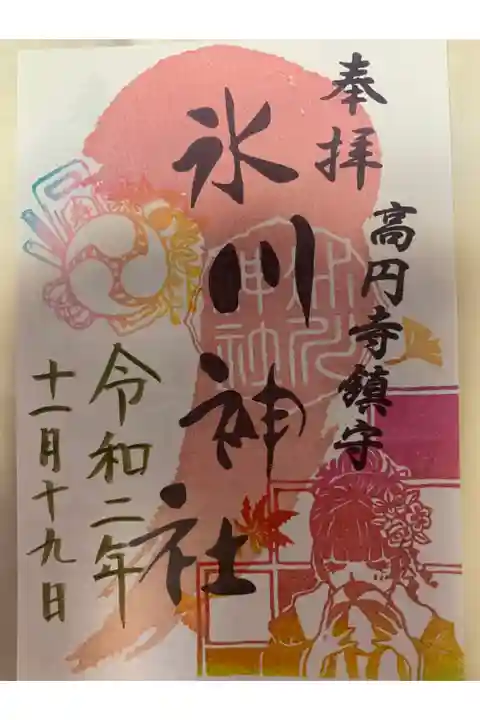 奉拝
高円寺鎮守
氷川神社
令和二年
十一月十九日